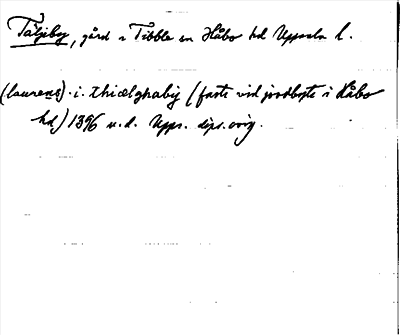 Täljeby, gård i Tibble sn Håbo hd Uppsala l.
(laurens) . i . thiælghabij (faste vid jordbyte i Håbo
hd) 1396 u.d. Upps. dipl. orig.